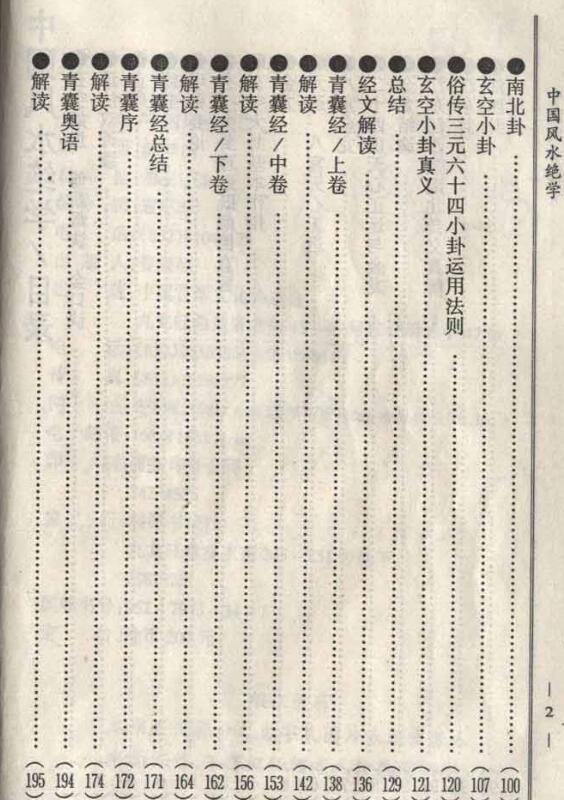 中国风水绝学
— 2 —
●南北卦……(100)
●玄空小卦……(107)
●俗传三元六十四小卦运用法则……(120)
●玄空小卦真义……(121)
●总结……(129)
●经文解读……(136)
●青囊经/上卷……(138)
●解读……(142)
●青囊经/中卷……(153)
●解读……(156)
●青囊经/下卷……(162)
●解读……(164)
●青囊经总结……(171)
●青囊序……(172)
●解读……(174)
●青囊奥语……(194)
●解读……(195)